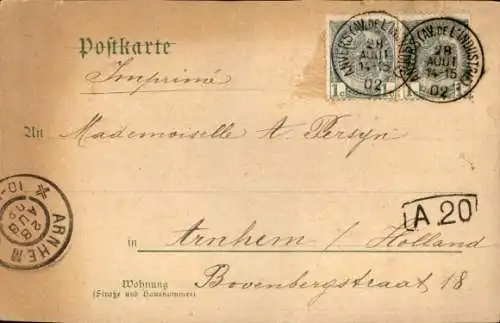 Postkarte
Imprimé
ANVERS (AV. DE L'INDUSTRIE)
28
AOUT
14-15
02
ANVERS (AV. DE L'INDUSTRIE)
28
AOUT
14-15
02
1c
1c
An Mademoiselle A. Persyn
ARNHEM
28
AUG
02
10-
A 20
in Arnhem / Holland
Wohnung Bovenbergstraat 18.
(Straße und Hausnummer)